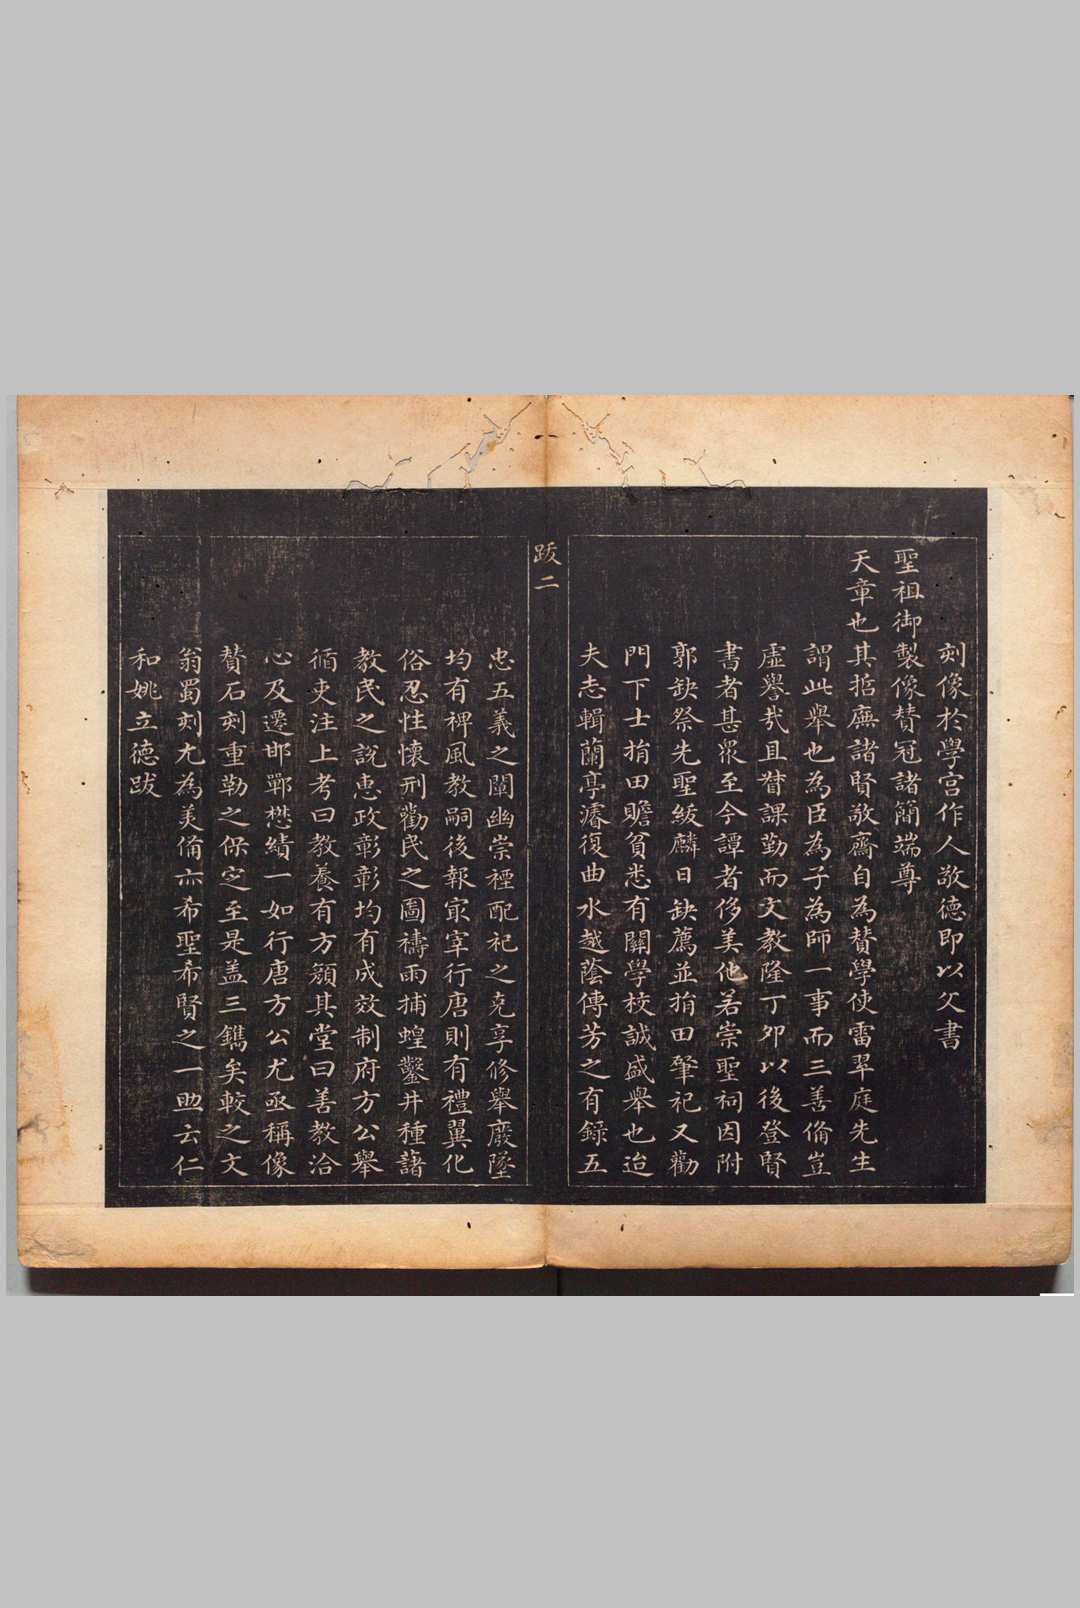 刻像於學宫作人敬德即以父書
聖祖御製像賛冠諸簡端尊
天章也其哲廡諸賢敬齋自為賛學使雷翠庭先生
謂此舉也為臣為子為師一事而三善脩豈
虛譽哉且督課勤而文教隆丁夘以後登賢
書者甚眾至今譚者侈美他若崇聖祠因附
郭缺祭先聖紱麟日缺薦並捐田肇祀又勸
門下士捐田贍貧悉有關學校誠盛舉也迨
夫志輯蘭亭濬復曲水越蔭傳芳之有録五
跋二
忠五義之闡幽崇禋配祀之克享修舉廢墜
均有裨風教嗣後報冣宰行唐則有禮冀化
俗忍性懷刑勸民之圖禱雨捕蝗鑿井種藷
教民之說惠政彰彰均有成效制府方公舉
循吏注上考曰教養有方額其堂曰善教洽
心及遷邯鄲懋績一如行唐方公尤亟稱像
賛石刻重勒之保定至是盖三鐫矣較之文
翁蜀刻尤為美俻亦希聖希賢之一助云仁
和姚立德跋